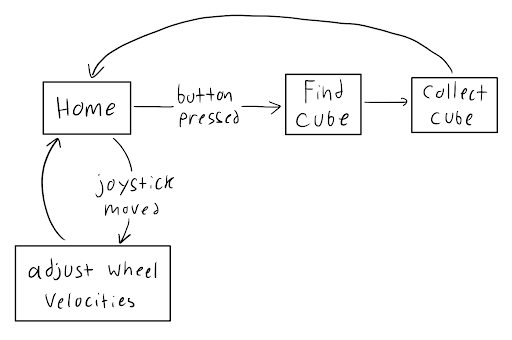 Home
button
pressed
Find
cube
collect
cube
joystick
moved
adjust wheel
velocities